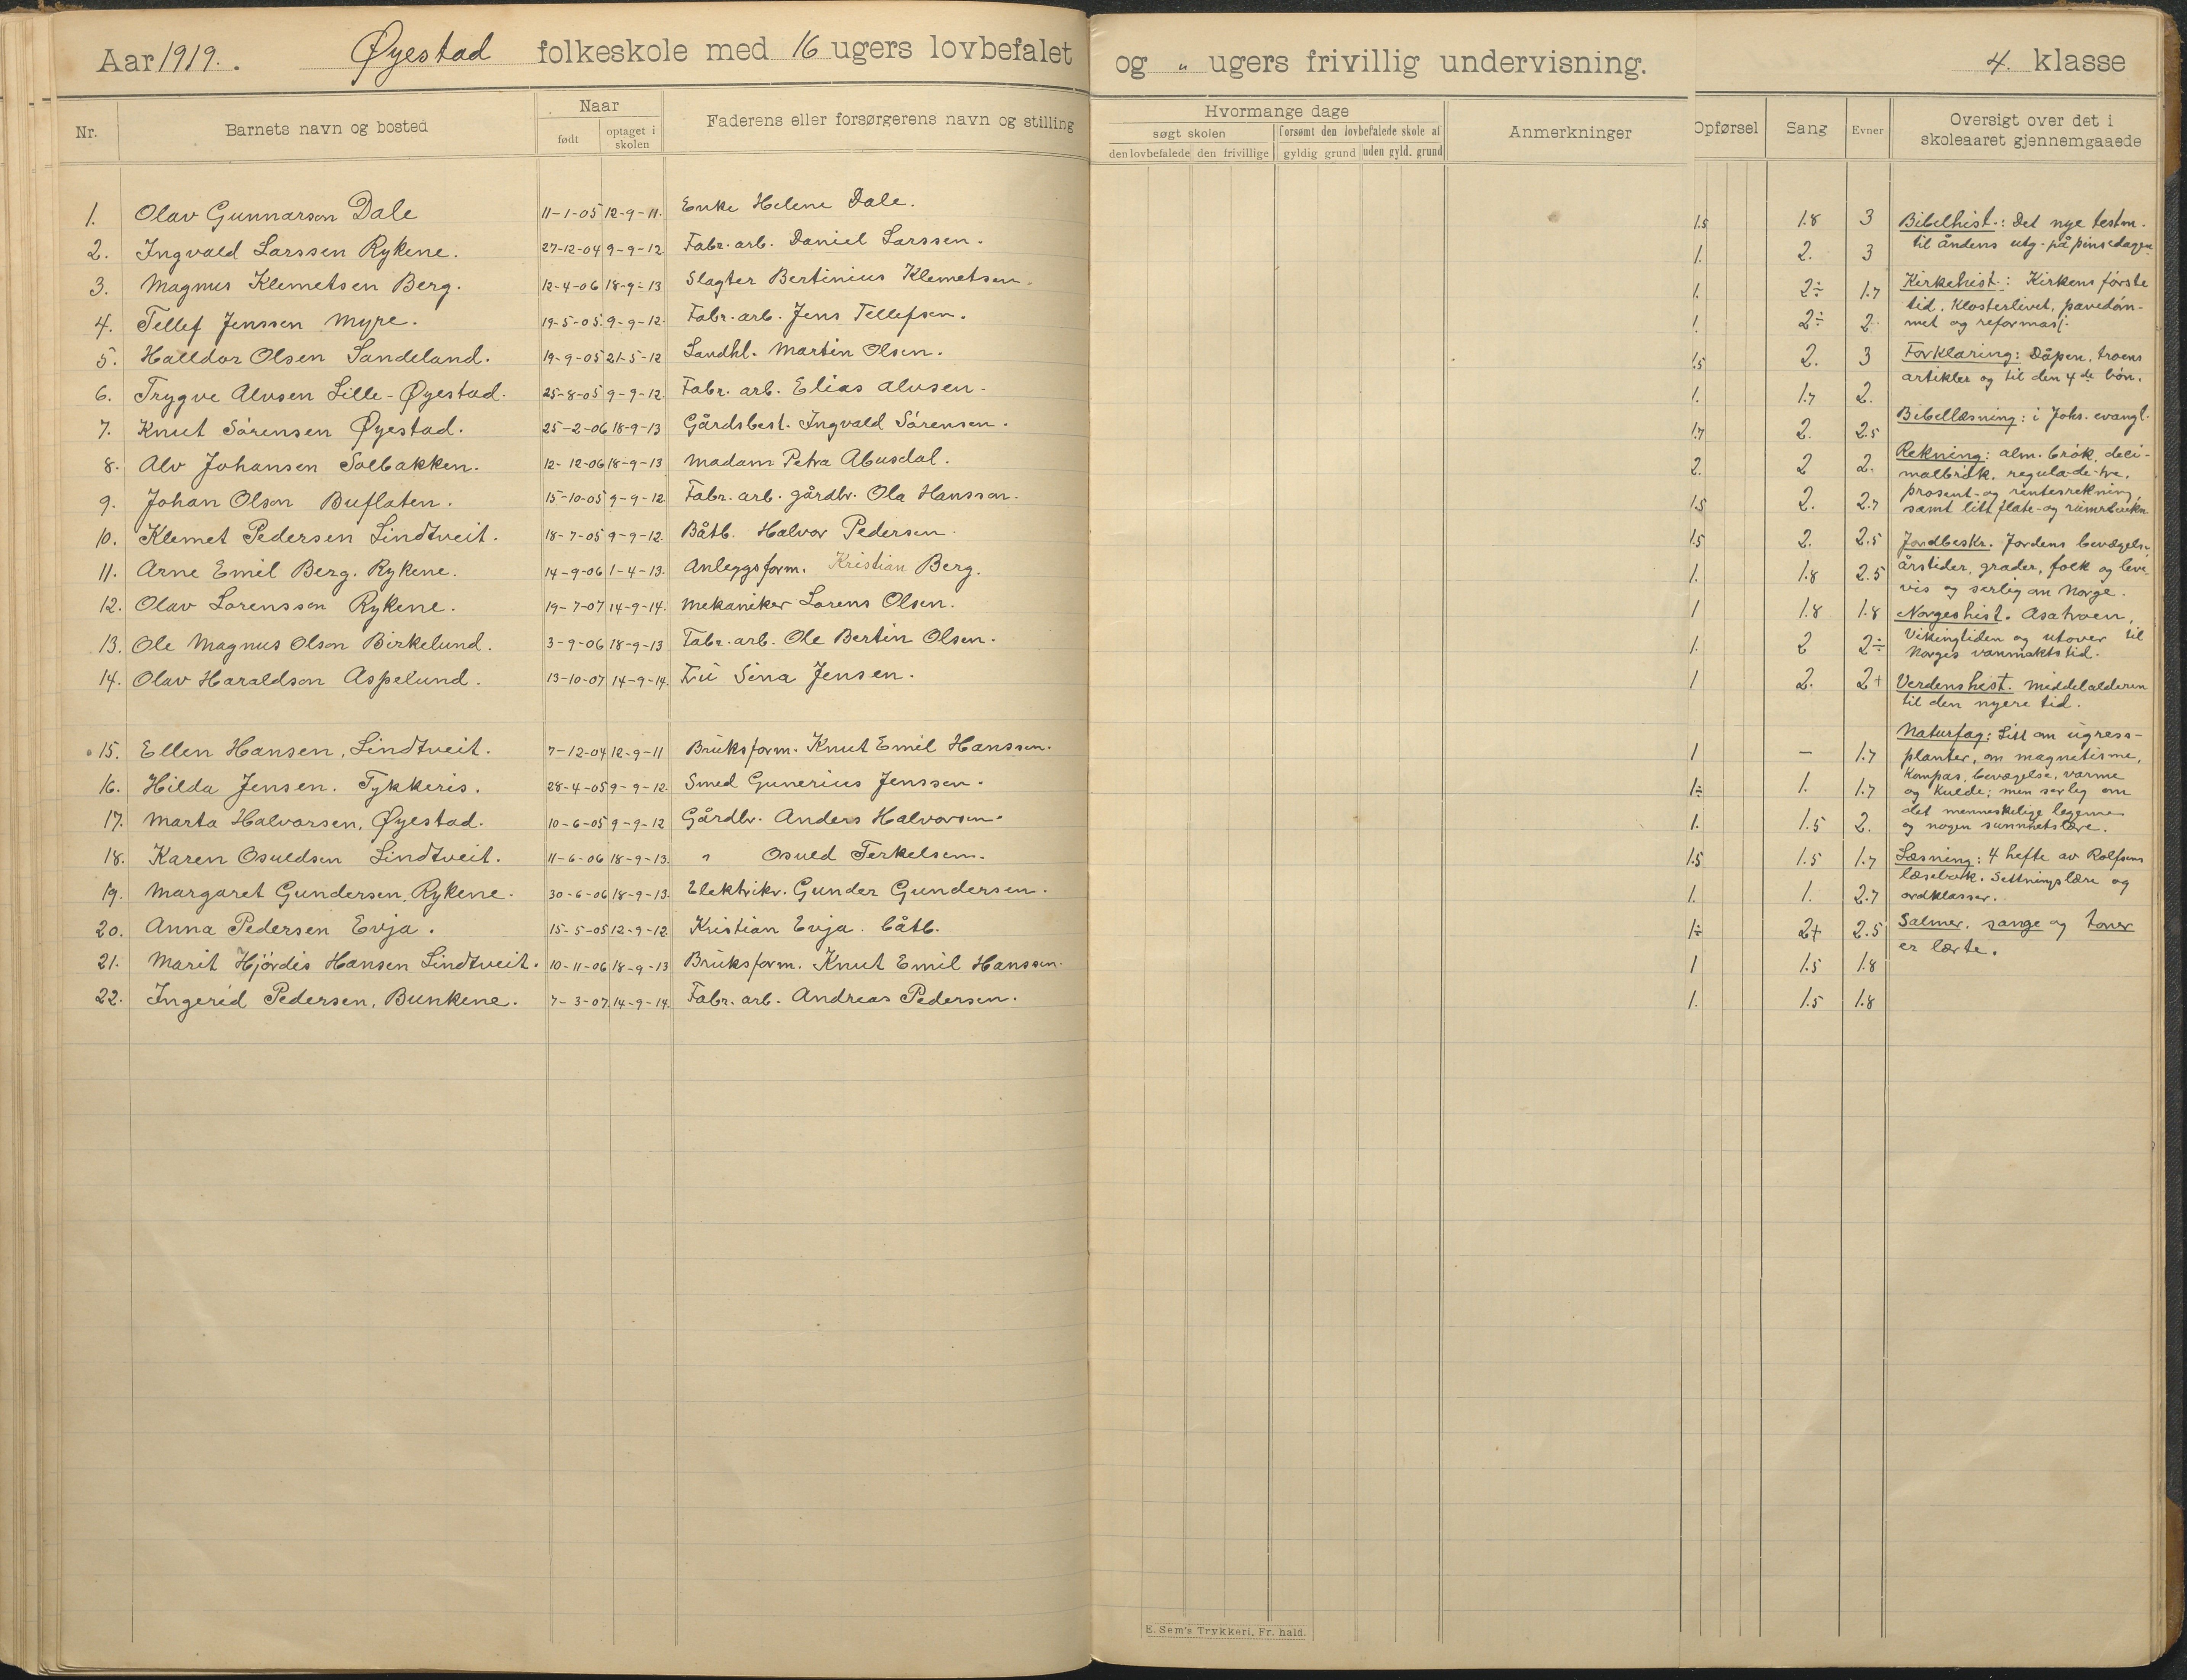 Aar 1919. Øyestad folkeskole med 16 ugers lovbefalet og " ugers frivillig undervisning. 4. klasse
Nr. Barnets navn og bosted Naar født optaget i skolen Faderens eller forsørgerens navn og stilling
Hvormange dage
søgt skolen forsømt den lovbefalede skole af
den lovbefalede den frivillige gyldig grund uden gyld. grund
Anmerkninger Opførsel Sang Evner Oversigt over det i skoleaaret gjennemgaaede
1. Olav Gunnarson Dale 11-1-05 12-9-11. Enke Helene Dale. 1.5 1.8 3
2. Ingvald Larssen Rykene. 27-12-04 9-9-12 Fabr. arb. Daniel Larssen. 1. 2. 3
3. Magnus Klemetsen Berg. 12-4-06 18-9-13 Slagter Bertinius Klemetsen. 1. 2÷ 1.7
4. Tellef Jenssen Myre. 19-5-05. 9-9-12. Fabr. arb. Jens Tellefsen. 1. 2÷ 2.
5. Halldor Olsen Sandeland. 19-9-05 21-5-12 Landhl. Martin Olsen. 1.5 2. 3
6. Trygve Alvsen Lille-Øyestad. 25-8-05 9-9-12. Fabr. arb. Elias Alvsen. 1. 1.7 2.
7. Knut Sörensen Øyestad. 25-2-06 18-9-13 Gårdsbest. Ingvald Sörensen. 1.7 2. 2.5
8. Alv Johansen Solbakken. 12-12-06 18-9-13 Madam Petra Abusdal. 2. 2 2.
9. Johan Olson Buflaten. 15-10-05 9-9-12. Fabr. arb. gårdbr. Ola Hansson. 1.5 2. 2.7
10. Klemet Pedersen Lindtveit. 18-7-05 9-9-12. Båtb. Halvor Pedersen. 1.5 2. 2.5
11. Arne Emil Berg. Rykene. 14-9-06 1-4-13. Anleggsform. Kristian Berg. 1. 1.8 2.5
12. Olav Lorensson Rykene. 19-7-07 14-9-14. Mekaniker Lorens Olsen. 1 1.8 1.8
13. Ole Magnus Olson Birkelund. 3-9-06 18-9-13 Fabr. arb. Ole Bertin Olsen. 1. 2 2÷
14. Olav Haraldson Aspelund. 13-10-07 14-9-14. Fru Sina Jensen. 1 2. 2+
15. Ellen Hansen, Lindtveit. 7-12-04 12-9-11 Bruksform. Knut Emil Hanssen. 1 — 1.7
16. Hilda Jensen. Tykkeris. 28-4-05 9-9-12. Smed Gunerius Jenssen. 1÷ 1. 1.7
17. Marta Halvorsen, Øyestad. 10-6-05 9-9-12 Gårdbr. Anders Halvorsen. 1. 1.5 2.
18. Karen Osuldsen Lindtveit. 11-6-06 18-9-13. " Osuld Terkelsen. 1.5 1.5 1.7
19. Margaret Gundersen, Rykene. 30-6-06 18-9-13. Elektrikr. Gunder Gundersen. 1. 1. 2.7
20. Anna Pedersen Evja. 15-5-05 12-9-12 Kristian Evja. båtb. 1÷ 2+ 2.5
21. Marit Hjördis Hansen Lindtveit. 10-11-06 18-9-13 Bruksform. Knut Emil Hanssen. 1 1.5 1.8
22. Ingerid Pedersen, Bunkene. 7-3-07. 14-9-14. Fabr. arb. Andreas Pedersen. 1. 1.5 1.8
Bibelhist.: Det nye testm.
til åndens utg. på pinsedagen
Kirkehist.: Kirkens første
tid, Klosterlivet, pavedöm-
met og reformasj.
Forklaring: Dåpen, troens
artikler og til den 4de bön.
Bibellæsning: i Johs. evangl.
Rekning: alm. brök, deci-
malbrök, regula-de-tre,
prosent- og rentesrekning,
samt litt flate- og rumrekn.
Jordbeskr. Jordens bevægelse,
årstider, grader, folk og leve-
vis og serlig om Norge.
Norgeshist. Asatroen,
Vikingtiden og utover til
Norges vanmaktstid.
Verdenshist. Middelalderen
til den nyere tid.
Naturfag: Litt om ugress-
planter, om magnetisme,
Kompas, bevægelse, varme
og kulde; men serleg om
det menneskelige legeme
og nogen sunnhetslære.
Læsning: 4 hefte av Rolfsens
læsebok. Setningslære og
ordklasser.
Salmer, sange og toner
er lærte.
E. Sem's Trykkeri, Fr.hald.